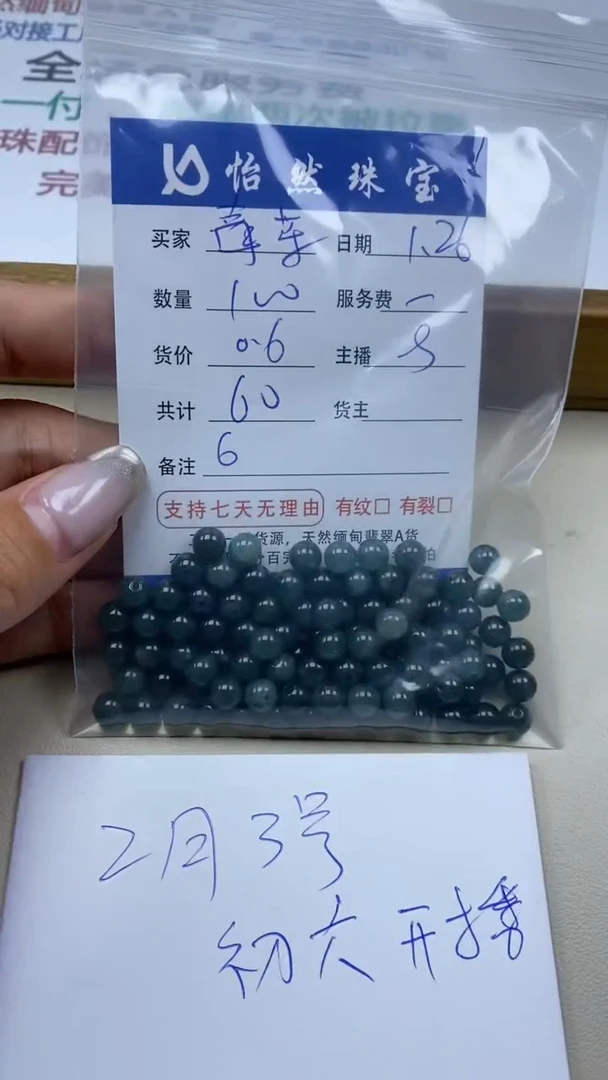 然缅甸
对接工
全
一付
珠配
完
怡然珠宝
买家 日期 1.26
数量 100 服务费 一
货价 0.6 主播
共计 60 货主
备注 6
支持七天无理由 有纹□ 有裂□
货源，天然缅甸翡翠A货
2月3号
初六开播